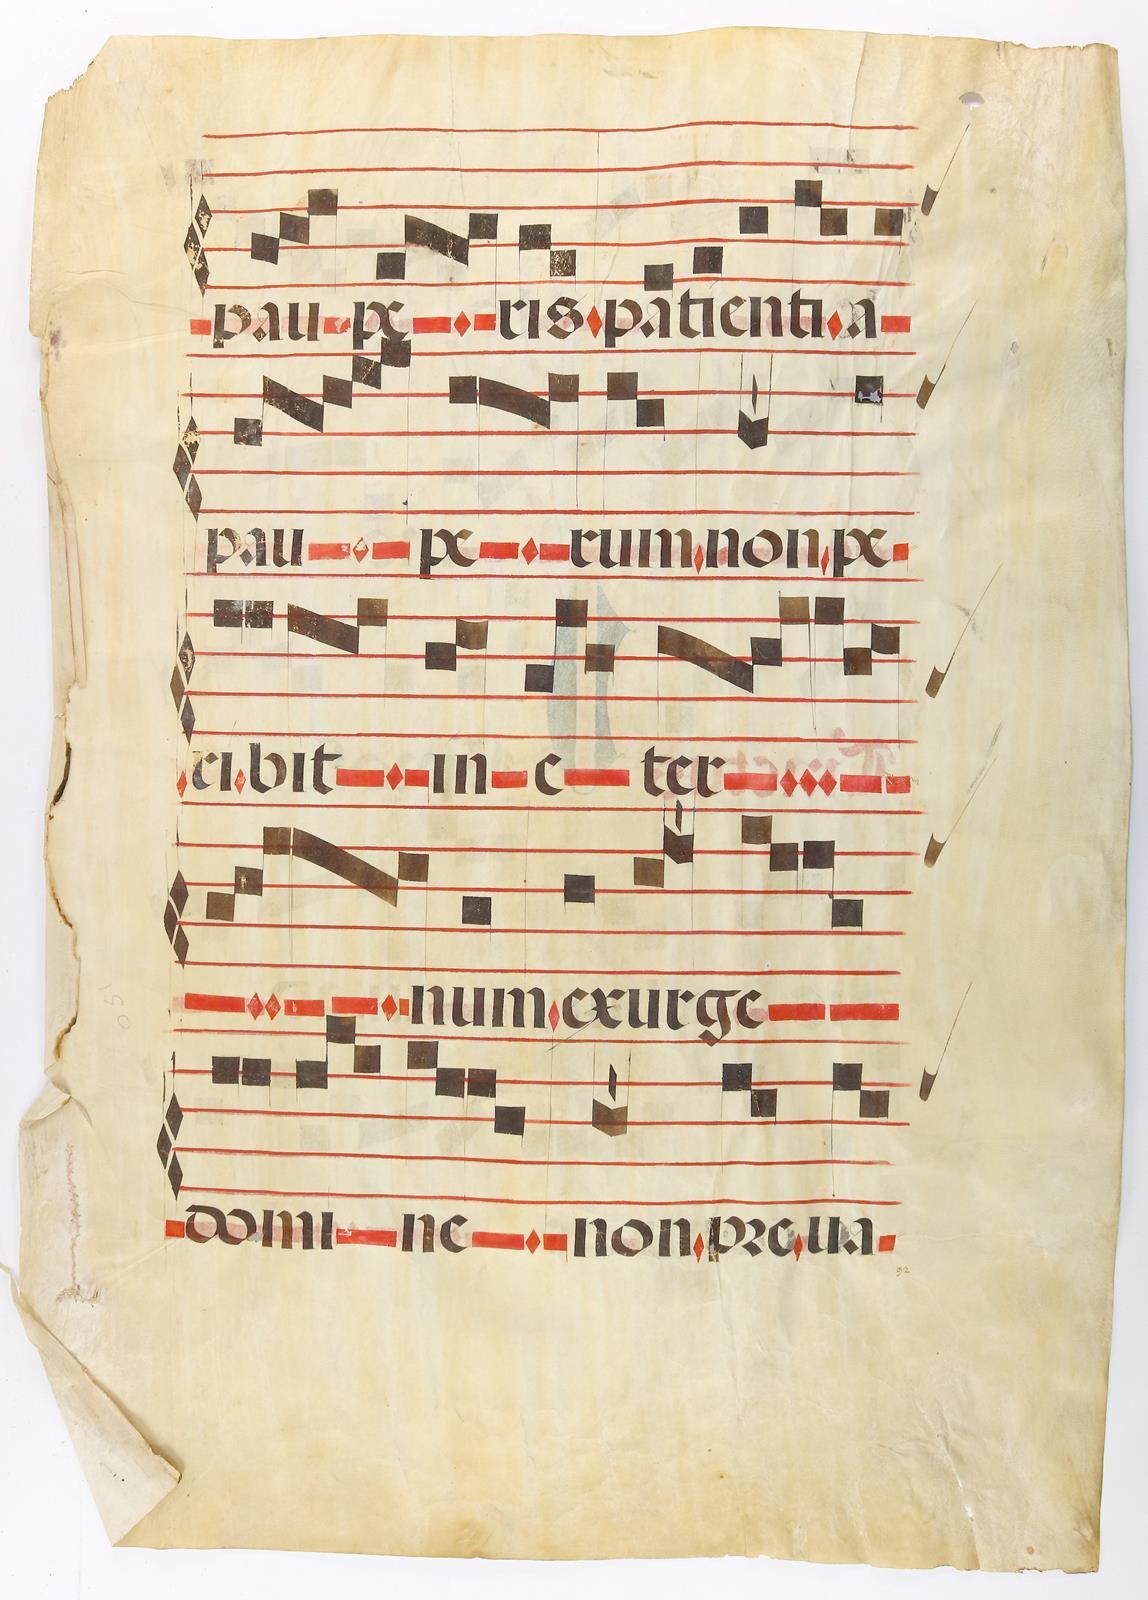 pau pe ris patienti a
pau pe rum non pe
ri bit in e ter
num exurge
domi ne non pre ua
92